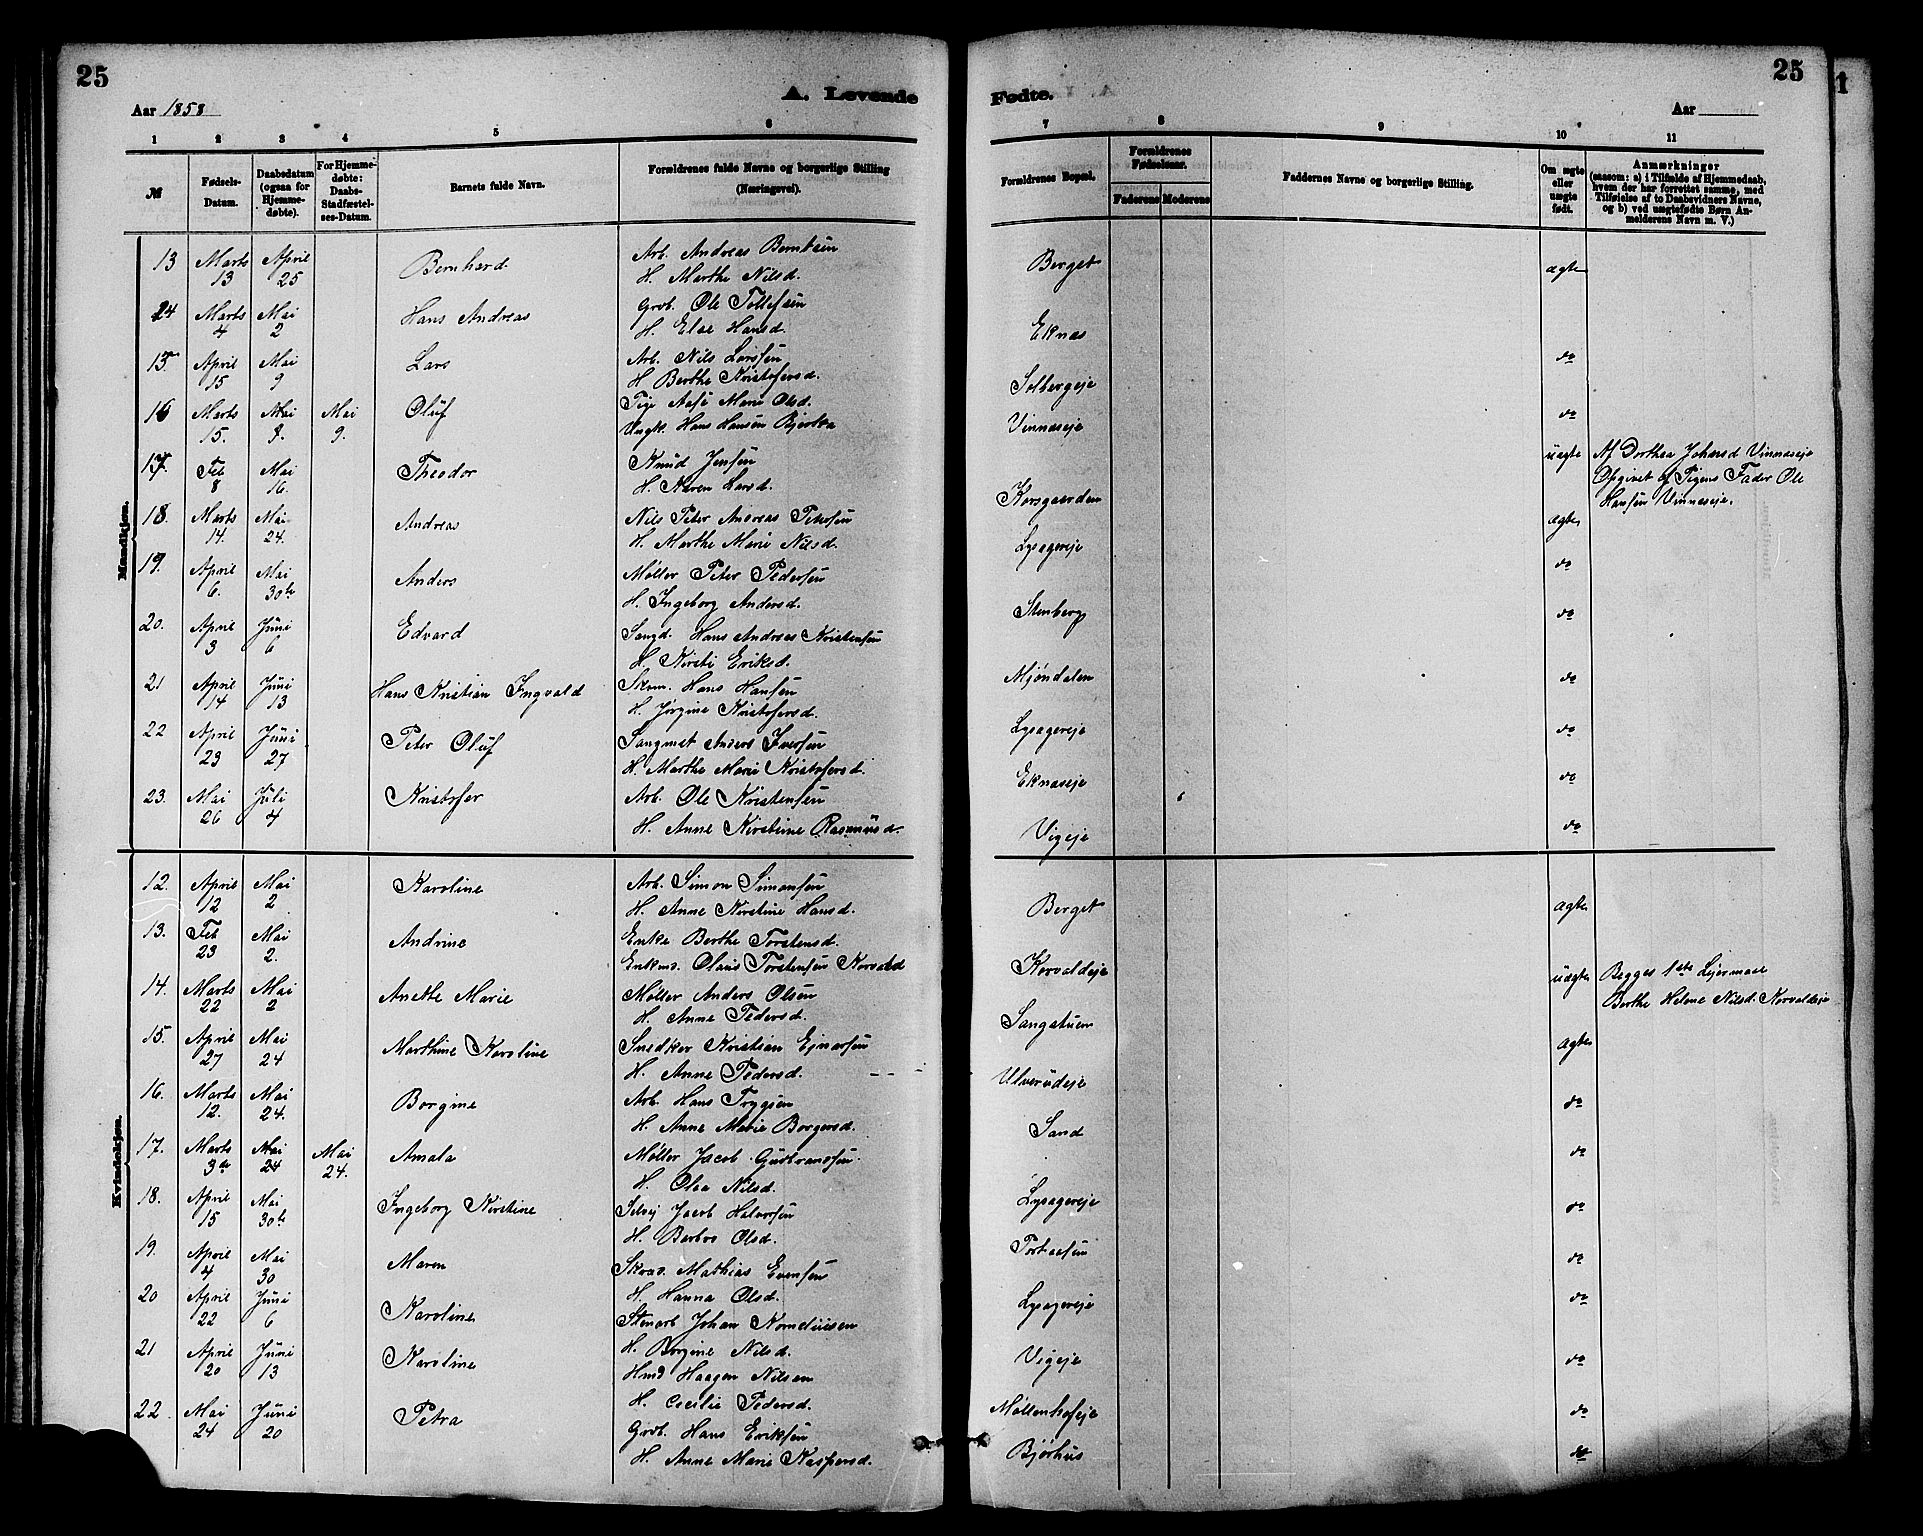 25
Aar 1858
A. Levende
1 2 3 4 5 6
№ Fødsels-Datum. Daabsdatum (ogsaa for Hjemmedøbte). For Hjemmedøbte: Daabs-Stadfæstelses-Datum. Barnets fulde Navn. Forældrenes fulde Navne og borgerlige Stilling (Næringsvei).
Mandkjøn.
13 Marts 13 April 25 Bernhard Arb. Andreas Berntsen
H. Marthe Nilsd.
14 Marts 4 Mai 2 Hans Andreas Grvb. Ole Tollefsen
H. Else Hansd.
15. April 15 Mai 9 Lars Arb. Nils Larssen
H Berthe Kristofersd.
16 Marts 15. Mai 9. Mai 9. Oluf Pige Marie Olsd.
Ungk. Hans Hansen Bjerka
17. Feb 8 Mai 16. Theodor Knud Jensen
H. Karen Larsd.
18. Marts 14. Mai 24. Andreas Nils Peter Andreas Petersen
H. Marthe Marie Nilsd.
19. April 6. Mai 30te Anders Møller Peter Pedersen
H. Ingeborg Andersd.
20. April 3 Juni 6 Edvard Sangd. Hans Andreas Kristensen
H. Kirsti Eriksd.
21 April 14 Juni 13 Hans Kristian Ingvald Skrm. Hans Hansen
H. Jørgine Kristofersd.
22 April 23 Juni 27 Peter Oluf Sangmst Anders Iversen
H. Marthe Marie Kristofersd.
23. Mai 26 Juli 4 Kristofer Arb. Ole Kristensen
H. Anne Kirstine Rasmusd.
Kvindekjøn.
12. April 12 Mai 2 Karoline Arb. Simon Simonsen
H. Anne Kirstine Hansd.
13. Feb 23 Mai 2. Andrine Enke Berthe Torstensd.
Enkmd. Olaus Torstensen Korvald
14. Marts 22 Mai 2 Anette Marie Møller Anders Olsen
H. Anne Pedersd.
15. April 27 Mai 24 Marthine Karoline Snedker Kristian Ejnarsen
H. Anne Pedersd.
16. Marts 12. Mai 24. Borgine Arb. Hans Trygsen
H. Anne Marie Borgersd.
17. Marts 3de Mai 24 Mai 24. Amala Møller Jacob Gutbransen
H. Olea Nilsd.
18. April 15 Mai 30te Ingeborg Kirstine Selvej Jacob Halvorsen
H. Berbro Olsd.
19. April 4 Mai 30 Maren Skræd. Mathias Evensen
H. Hanna Olsd.
20 April 22 Juni 6 Karoline Stenarb Johan Korneliusen
H. Borgine Nilsd.
21 April 20 Juni 13 Karoline Hmd Haagen Nilsen
H. Cecilie Pedersd.
22. Mai 24 Juni 20 Petra Grvb. Hans Eriksen
H. Anne Marie Kaspersd.
25
Fødte.
Aar
1
7 8 9 10 11
Forældrenes Bopæl. Forældrenes Fødselsaar. Faderens Moderens Faddernes Navne og borgerlige Stilling. Om ægte eller uægte født. Anmærkninger (saasom: a) i Tilfælde af Hjemmedaab, hvem der har forrettet samme, med Tilføielse af to Daabsvidners Navne, og b) ved uægtefødte Børn Anmelderens Navn m. V.)
Berget ægte
Eknæs
do
Solbergeje
do
Vinnæseje
uægte Af Dorthea Johansd Vinnæseje
Opgivet af Pigens Fader Ole
Hansen Vinnæseje.
Korsgaarden
ægte
Lysagereje
do
Stenberg do
Mjøndalen do
Lysagereje do
Eknæseje do
Vigeje do
Berget ægte
Korvaldeje uægte Begges 1ste Lejermaal
Berthe Helene Nilsd. Korvaldeje
Sangstuen
ægte
Ulverudeje
do
Sand
do
Lysagereje do
Portaasen do
Lysagereje do
Vigeje do
Møllenhofeje do
Bjørhus do